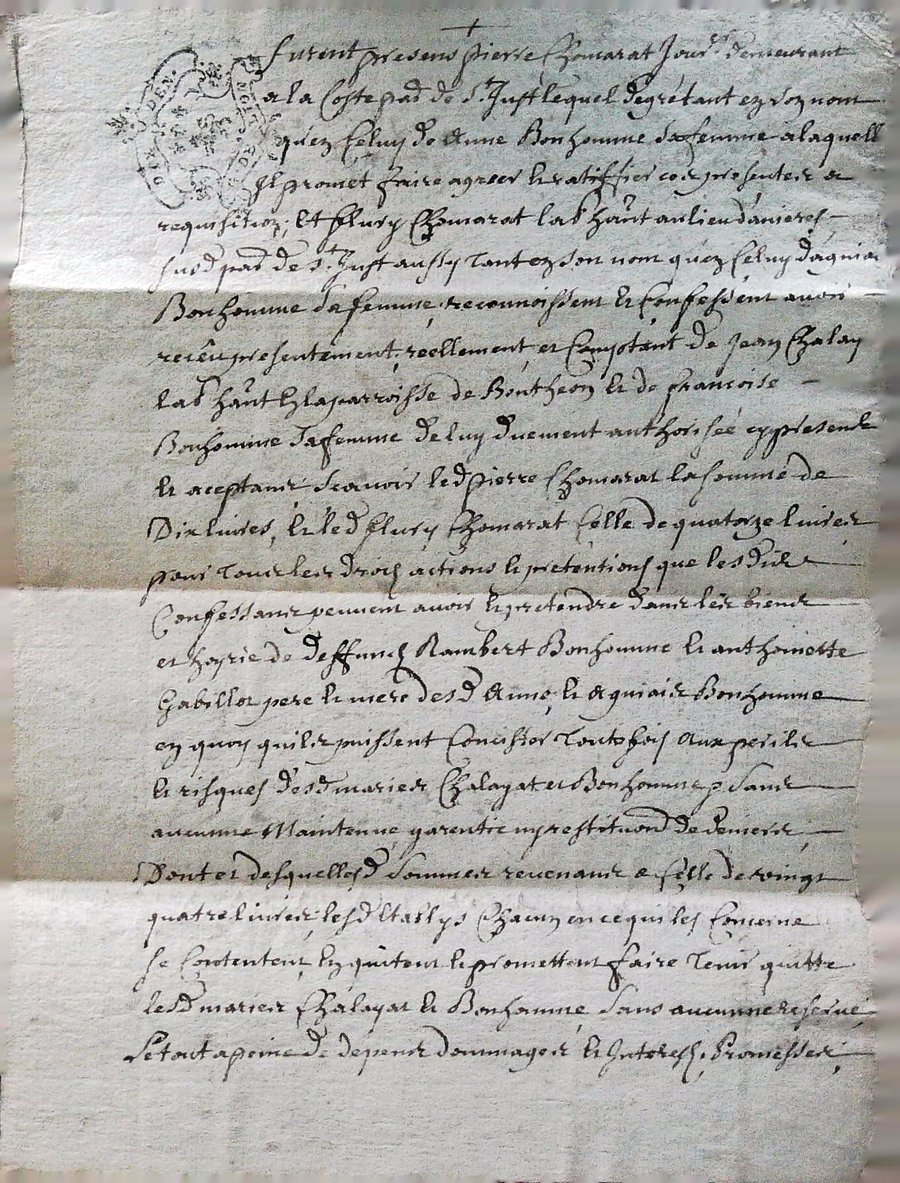 furent presens pierre Chomarat Jour.r demeurant
a la Coste pad de St Just lequel degretant en son nom
qu'en celuy de Anne Bonhomme sa femme a laquell
Il promet faire agreer & ratiffier ces presentes a
requisition, Et fleury Chomarat lab haut au lieu d'anieres
susd pad de St Just aussy tant en son nom qu'en celuy d'agniai
Bonhomme sa femme, reconnoissent & Confessent avoir
receu presentement, reellement et Comptant de Jean Chalay
lab haut & la parroisse de Bontheon & de francoise
Bonhomme sa femme de luy duement authorisée cy presente
& aceptans scavoir led pierre Chomarat la somme de
Dix livres, & led fleury Chomarat Celle de quatorze livres
pour tous les droits actions & pretentions que lesdits
Confessans peuvent avoir & pretendre dans les biens
et hoyrie de deffunct Rambert Bonhomme & anthoinette
Gabillot pere & mere desd Anne, & agniais Bonhomme
en quoy quils puissent Concister toutefois aux perils
& risques desd mariez Chalayat et Bonhomme, sans
aucunne Maintenue garentie ny restituon de deniers
Dont et desquelles sommes revenans a celle de vingt
quatre livres, lesd Establys Chacun en ce qui les Concerne
se Contentent, en quitent & promettent faire tenir quitte
lesd mariez Chalayat & Bonhomme sans aucunne reserve
Le tout a peine de depens dommages & Interests, Promesses,